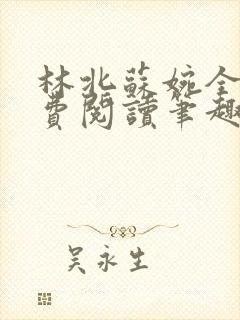 林北蘇婉全
費閱讀筆趣
吴永生